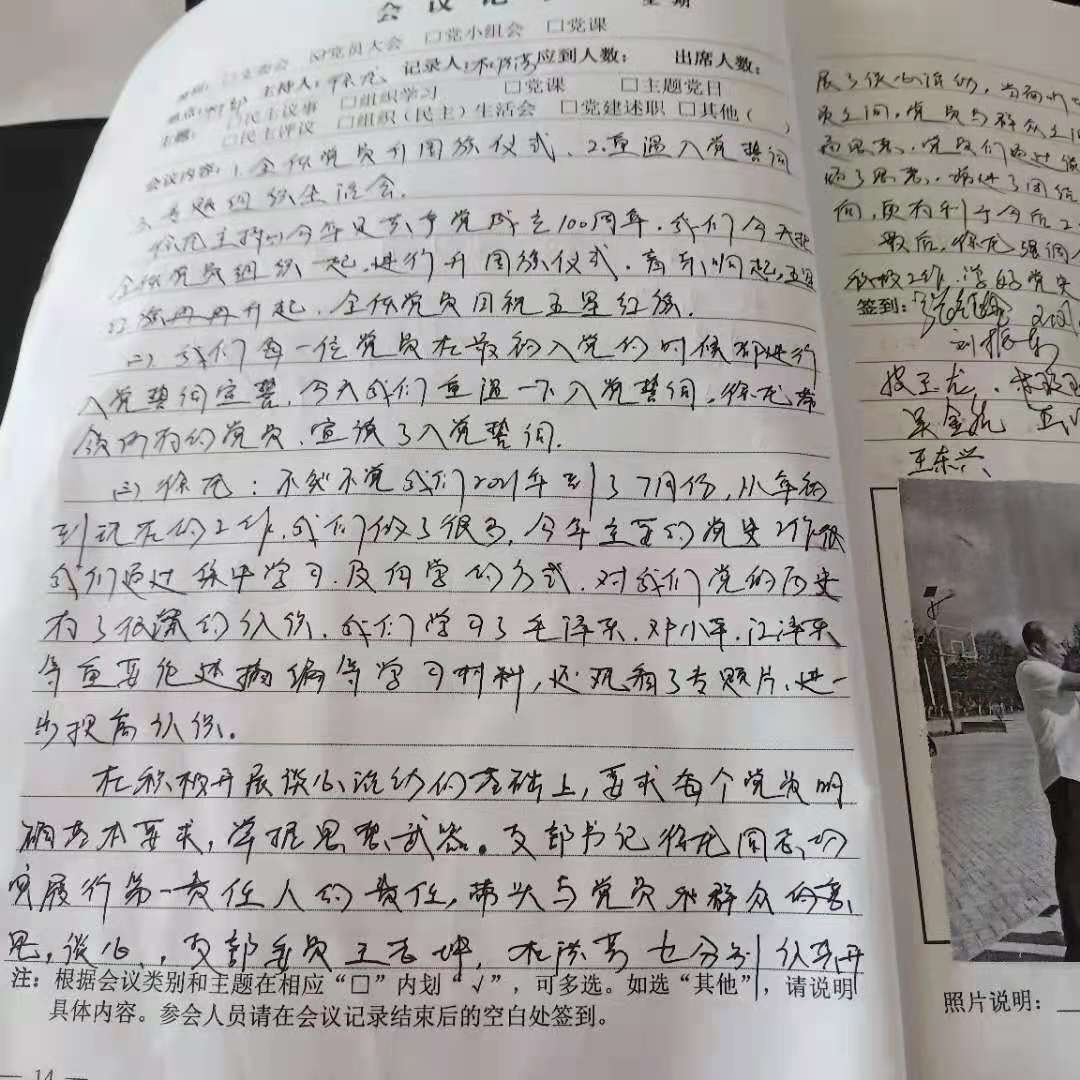 会议记
星期
□党员大会 □党小组会 □党课
主持人: 记录人: 应到人数: 出席人数:
□民主议事 □组织学习 □党课 □主题党日
主题: □民主评议 □组织(民主)生活会 □党建述职 □其他( )
会议内容:1.全体党员升国旗仪式、2.重温入党誓词
3.专题组织生活会.
徐龙主持:今年是共产党成立100周年.我们今天把
全体党员组织一起,进行升国旗仪式.音乐响起,五星
红旗冉冉升起,全体党员目视五星红旗.
(二)我们每一位党员在最初入党的时候都进行
入党誓词宣誓,今天我们重温一下入党誓词,徐龙带
领所有的党员,宣读了入党誓词.
(三)徐龙:不知不觉我们2021年到了7月份,从年初
到现在的工作,我们做了很多,今年主要的党史工作
我们通过集中学习,及自学的方式,对我们党的历史
有了很深的认识,我们学习了毛泽东,邓小平,江泽民
等重要论述摘编等学习材料,还观看了专题片,进一
步提高认识。
在积极开展谈心活动的基础上,要求每个党员明
确基本要求,掌握思想武器。支部书记徐龙同志切
实履行第一责任人的责任,带头与党员和群众
谈心,支部委员 也分别认真开
注:根据会议类别和主题在相应“□”内划“√”,可多选。如选“其他”,请说明
具体内容。参会人员请在会议记录结束后的空白处签到。
— 14 —
展了谈心活动,
员之间,党员与群众之
了思想,增进了团结
向,更有利于今后工
最后,徐龙强调
积极工作,学好党史
签到:
王东兴
照片说明: